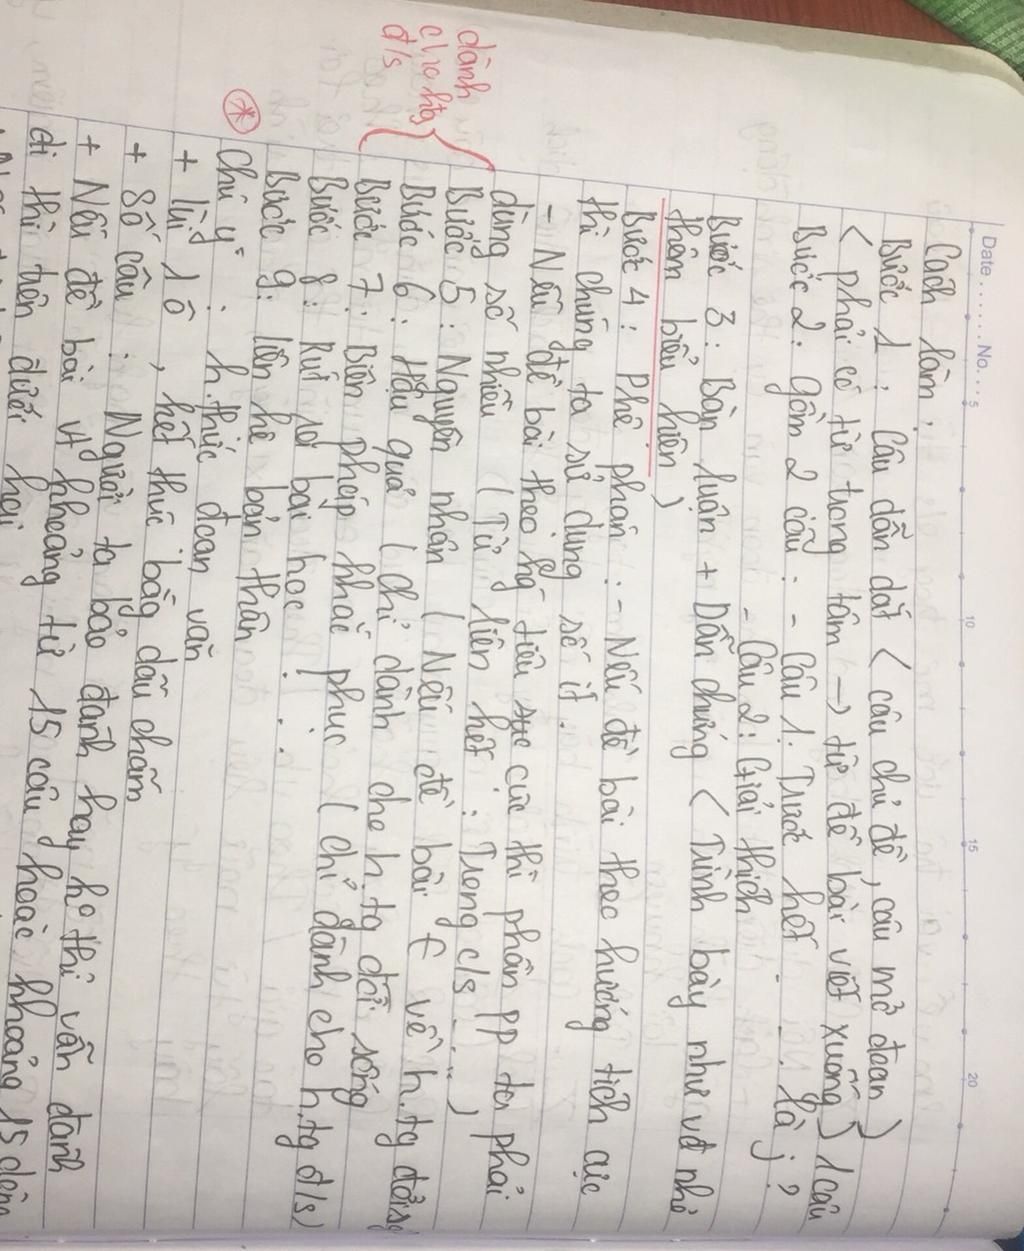 Date ...... No. ... 5 10 15 20
Cách làm :
Bước 1 : Câu dẫn dắt < câu chủ đề, câu mở đoạn)
< phải có từ trung tâm → từ đề bài viết xuống) 1 câu
Bước 2: Gồm 2 câu : - Câu 1: Trước hết - - - là j ?
- Câu 2: Giải thích
Bước 3 : Bàn luận + Dẫn chứng < Trình bày như vđ nhỏ
thêm biểu hiện)
Bước 4 : Phê phán : - Nếu đề bài theo hướng tích cực
thì chúng ta sử dụng số ít.
- Nếu đề bài theo hg tiêu cực thì phần pp ta phải
dùng số nhiều (Từ liên kết : Trong c/s ...)
Bước 5 : Nguyên nhân ( Nếu đề bài t về h.tg đời s
Bước 6 : Hậu quả ( chỉ dành cho h.tg đời sống
Bước 7 : Biện pháp khắc phục ( chỉ dành cho h.tg đ/s)
Bước 8 : Rút ra bài học . .
Bước 9 : liên hệ bản thân
dành
cho htg
đ/s
* Chú ý : h.thức đoạn văn
+ lùi 1 ô , kết thúc bằng dấu chấm
+ Số câu : Người ta bảo đánh hay ko thì vẫn đánh
+ Nếu đề bài y/c khoảng từ 15 câu hoặc khoảng 15 dòng
đi thì trên dưới hai